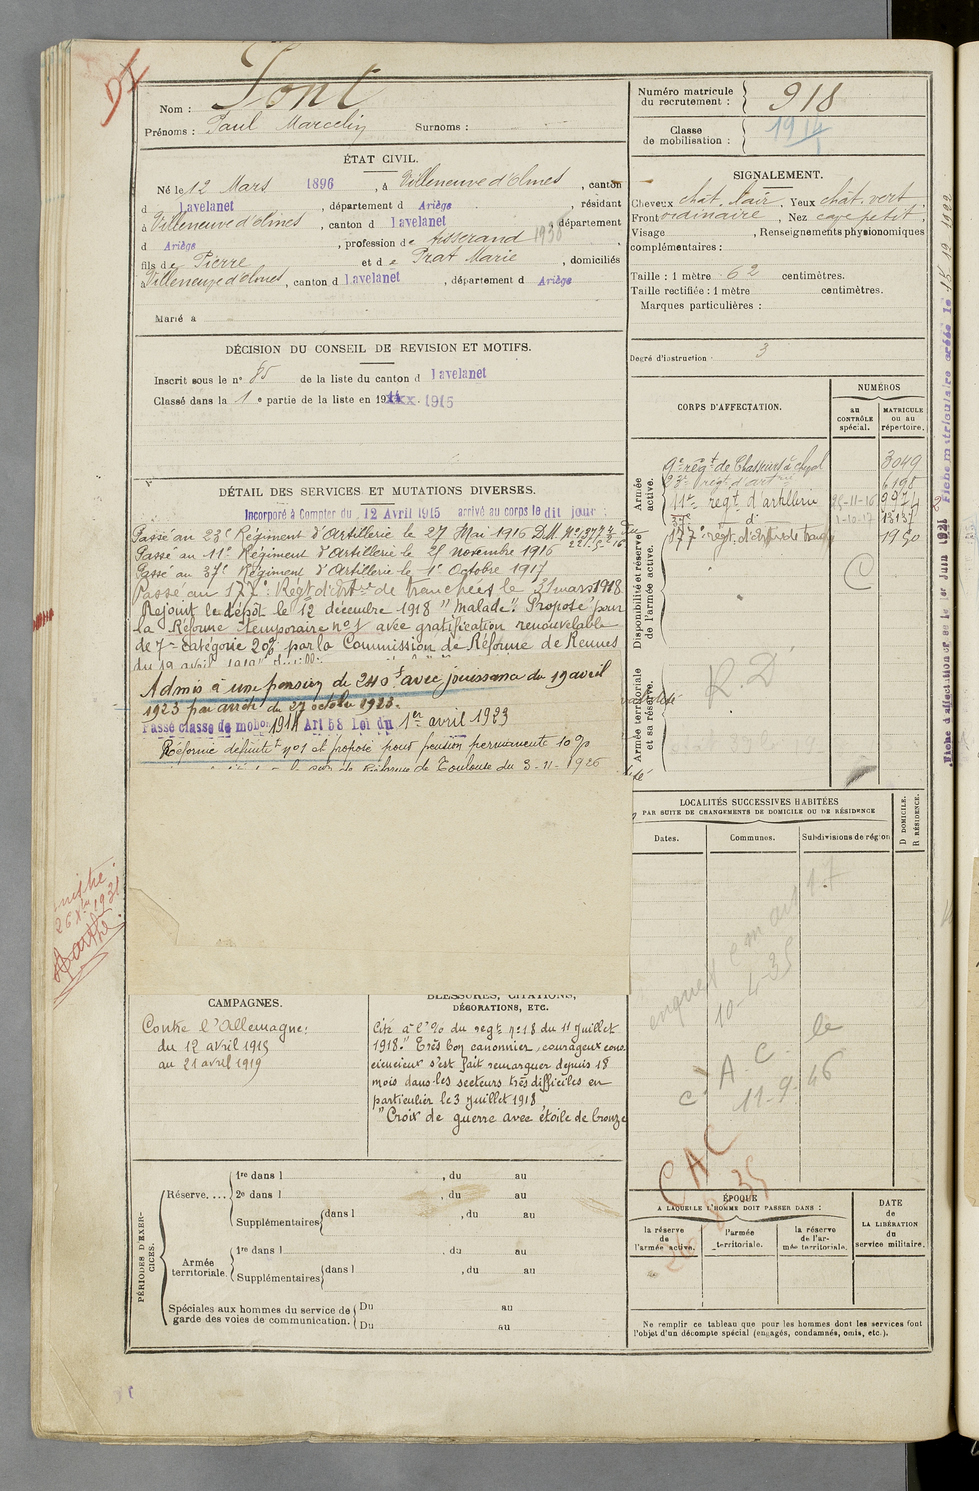 DI
Nom : Pont
Prénoms : Paul Marcelin Surnoms :
ÉTAT CIVIL.
Né le 12 Mars 1896, à Villeneuve d'olmes, canton
d Lavelanet, département d Ariège, résidant
à Villeneuve d'olmes, canton d Lavelanet, département
d Ariège, profession de tisserand 1936
fils de Pierre et de Prat Marie, domiciliés
à Villeneuve d'olmes, canton d Lavelanet, département d Ariège
Marié à
DÉCISION DU CONSEIL DE REVISION ET MOTIFS.
Inscrit sous le n° 85 de la liste du canton d Lavelanet
Classé dans la 1e partie de la liste en 1915
DÉTAIL DES SERVICES ET MUTATIONS DIVERSES.
Incorporé à Compter du 12 Avril 1915 arrivé au corps le dit jour :
Passé au 23e Régiment d'Artillerie le 27 Mai 1916 D.M.
Passé au 11e Régiment d'Artillerie le 25 novembre 1916
Passé au 37e Régiment d'Artillerie le 1er Octobre 1917
Passé au 177e Régt d'Artie de tranchées le 31 mars 1918
Rejoint le dépôt le 12 décembre 1918 "Malade". Proposé pour
la Réforme temporaire n°1 avec gratification renouvelable
de 7e catégorie 20% par la Commission de Réforme de Rennes
du 19 avril 1919
Admis à une pension de 240f avec jouissance du 19 avril
1923 par arrêté du 27 octobre 1923.
Passé classe de mobon 1914 Art 58 Loi du 1er avril 1923
Réformé définitt n°1 et proposé pour pension permanente 10%
de Réforme de Toulouse du 3-11-1926
CAMPAGNES.
Contre l'Allemagne:
du 12 avril 1915
au 21 avril 1919
BLESSURES, CITATIONS,
DÉCORATIONS, ETC.
Cité à l'% du regt n°18 du 11 juillet
1918. "Très bon canonnier, courageux cons
ciencieux s'est fait remarquer depuis 18
mois dans les secteurs très difficiles en
particulier le 3 juillet 1918
"Croix de guerre avec étoile de bronze
PÉRIODES D'EXERCICES.
Réserve....
1re dans l , du au
2e dans l , du au
Supplémentaires dans l , du au
Armée territoriale.
1re dans l , du au
Supplémentaires dans l , du au
Spéciales aux hommes du service de garde des voies de communication.
Du au
Du au
Numéro matricule du recrutement : 918
Classe de mobilisation : 1914
SIGNALEMENT.
Cheveux chât. clair, Yeux chât. vert,
Front ordinaire, Nez cave petit,
Visage , Renseignements physionomiques
complémentaires :
Taille : 1 mètre 62 centimètres.
Taille rectifiée : 1 mètre centimètres.
Marques particulières :
Degré d'instruction : 3
CORPS D'AFFECTATION.
NUMÉROS
au CONTRÔLE spécial.
MATRICULE ou au répertoire.
Armée active.
9e régt de Chasseurs à cheval 3049
23e régt d'artie 6198
11e regt d'artillerie 25-11-16 9974
37e d° 1-10-17 13137
177e regt d'Artie de tranchées 1950
Disponibilité et réserve de l'armée active.
C
Armée territoriale et sa réserve.
R.D
LOCALITÉS SUCCESSIVES HABITÉES
PAR SUITE DE CHANGEMENTS DE DOMICILE OU DE RÉSIDENCE
Dates. Communes. Subdivisions de région
D DOMICILE.
R RÉSIDENCE.
10-4-35
C.A.C. le
11-9-46
CAC
ÉPOQUE
A LAQUELLE L'HOMME DOIT PASSER DANS :
la réserve de l'armée active.
l'armée territoriale.
la réserve de l'armée territoriale.
DATE de LA LIBÉRATION du service militaire.
Ne remplir ce tableau que pour les hommes dont les services font
l'objet d'un décompte spécial (engagés, condamnés, omis, etc.).